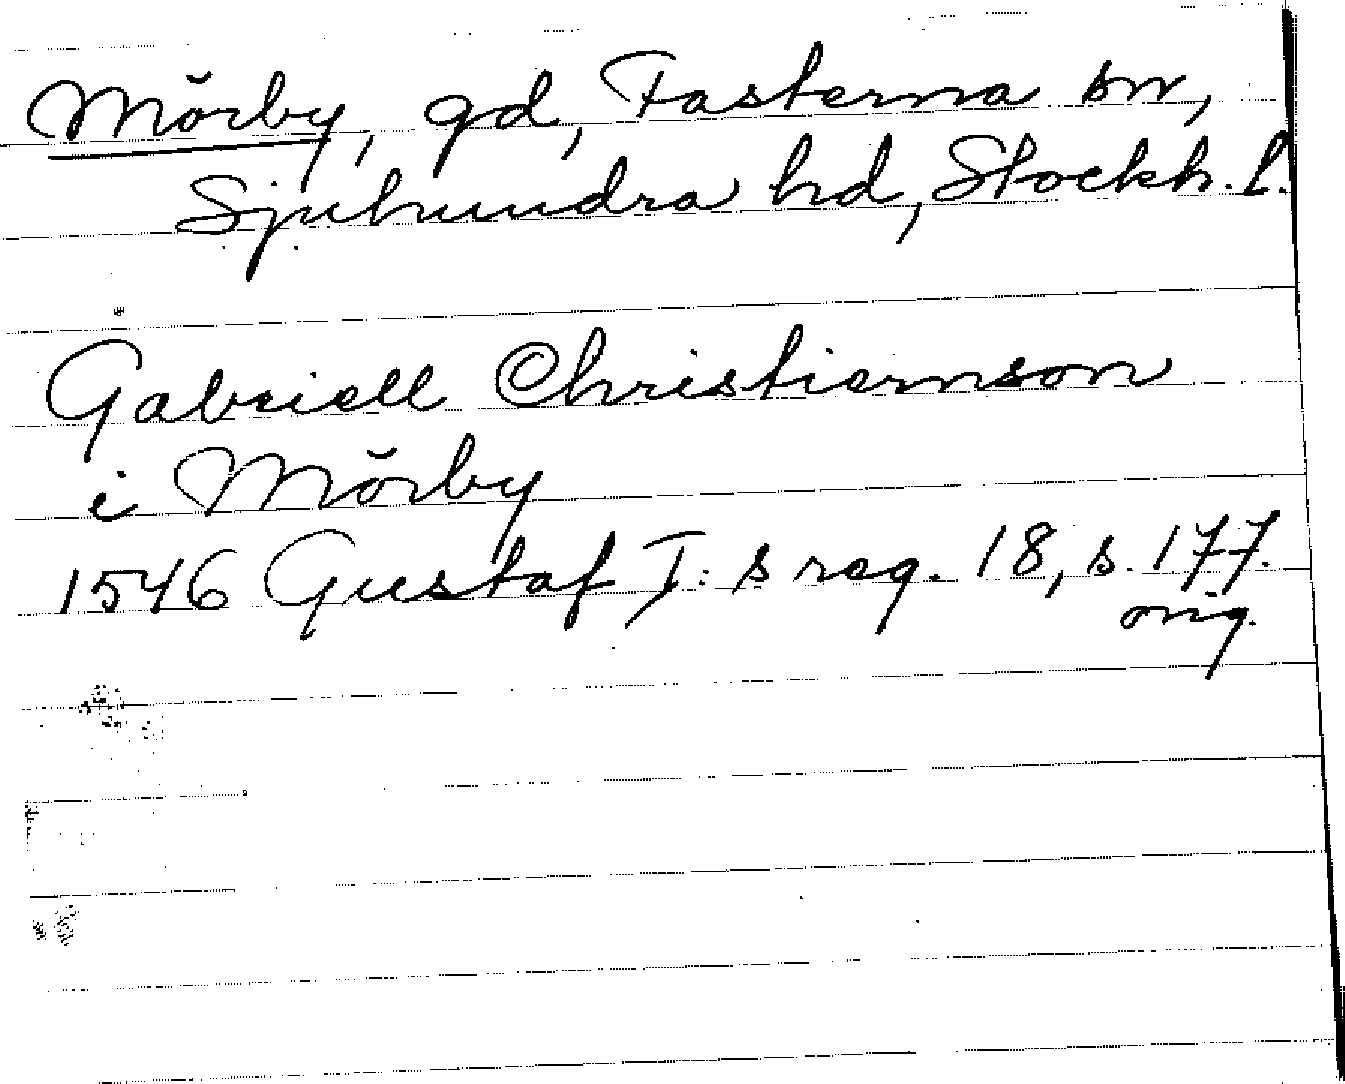 Mörby, gd, Fasterna sn,
Sjuhundra hd, Stockh. l.
Gabriell Christiernson
i Mörby
1546 Gustaf I:s reg. 18, s. 177.
orig.